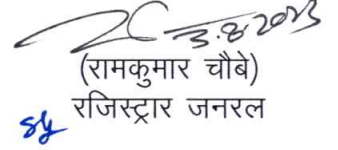 3.8.2023
(रामकुमार चौबे)
रजिस्ट्रार जनरल